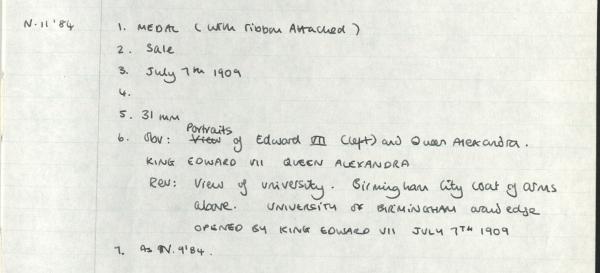 N.11'84 1. MEDAL (with ribbon Attached)
2. Sale
3. July 7th 1909
4.
5. 31 mm
6. Obv: Portraits of Edward VII (left) and Queen Alexandra.
KING EDWARD VII QUEEN ALEXANDRA
Rev: View of university. Birmingham City coat of arms
above. UNIVERSITY OF BIRMINGHAM around edge
OPENED BY KING EDWARD VII JULY 7TH 1909
7. As N.9'84.